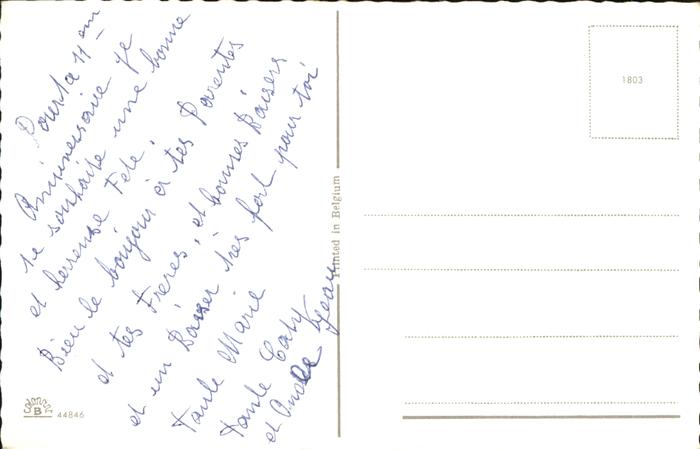 Pour ta 11em
Anniversaire je
te souhaite une bonne
et herreuse Fete.
Bien le bonjour à tes Parentes
et tes Freres, et bonnes Baisers
et un Baiser très fort pour toi
Tante Marie
Tante Caty
et Jean
Printed in Belgium
1803
B
44846